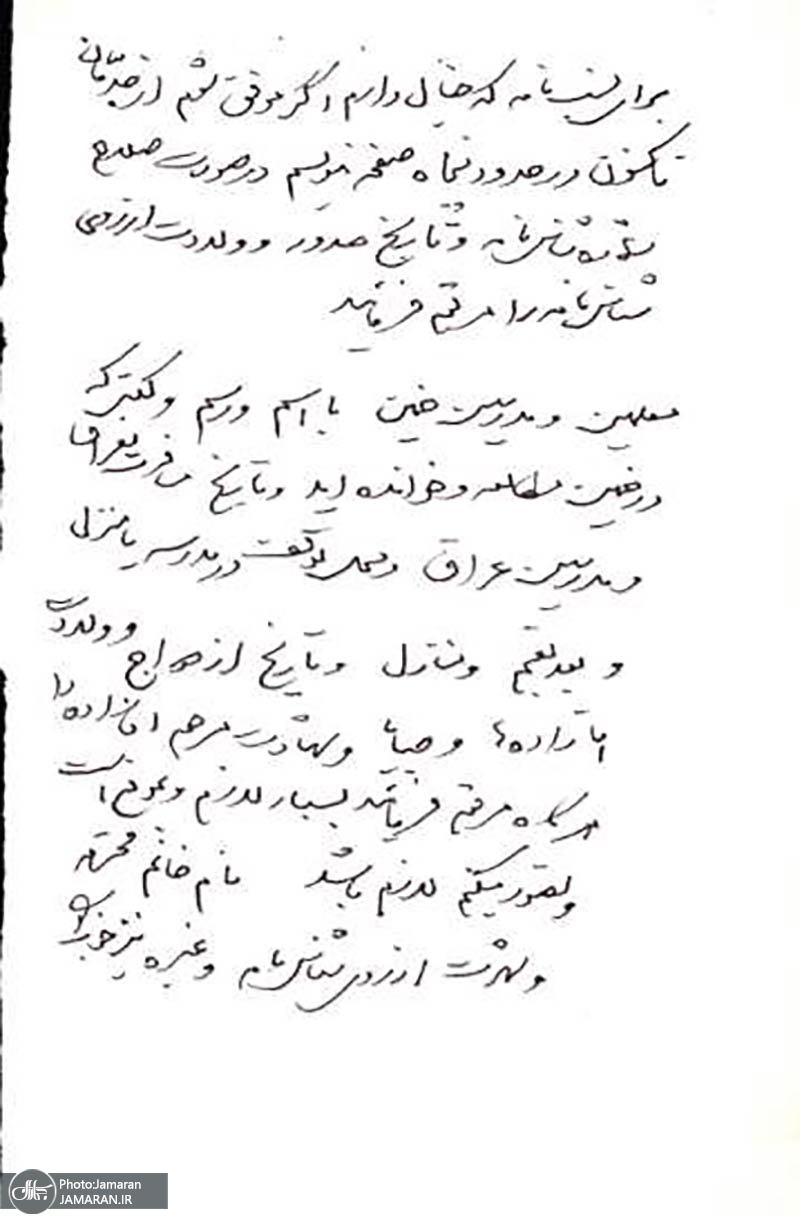 برای نسب نامه که خیال دارم اگر موفق شوم از جدّمان
تاکنون در حدود پنجاه صفحه بنویسم در صورت صلاح
شماره شناس نامه و تاریخ صدور و ولادت از روی
شناس نامه را مرقوم فرمائید
معلمین و مدرسین خمین با اسم و رسم و کتبی که
در خمین مطالعه و خوانده اید و تاریخ مسافرت بعراق
و مدرسین عراق و محل توقف در مدرسه یا منزل
و بعد بقم و منازل و تاریخ ازدواج و ولادت
آقازاده ها و صبایا و شهادت مرحوم آقازاده را
هرگاه مرقوم فرمائید بسیار لازم و بموقع است
و تصور میکنم لازم باشد نام خانم محترمه
و شهرت از روی شناس نامه و غیره نیز خوبست
Photo:Jamaran
JAMARAN.IR